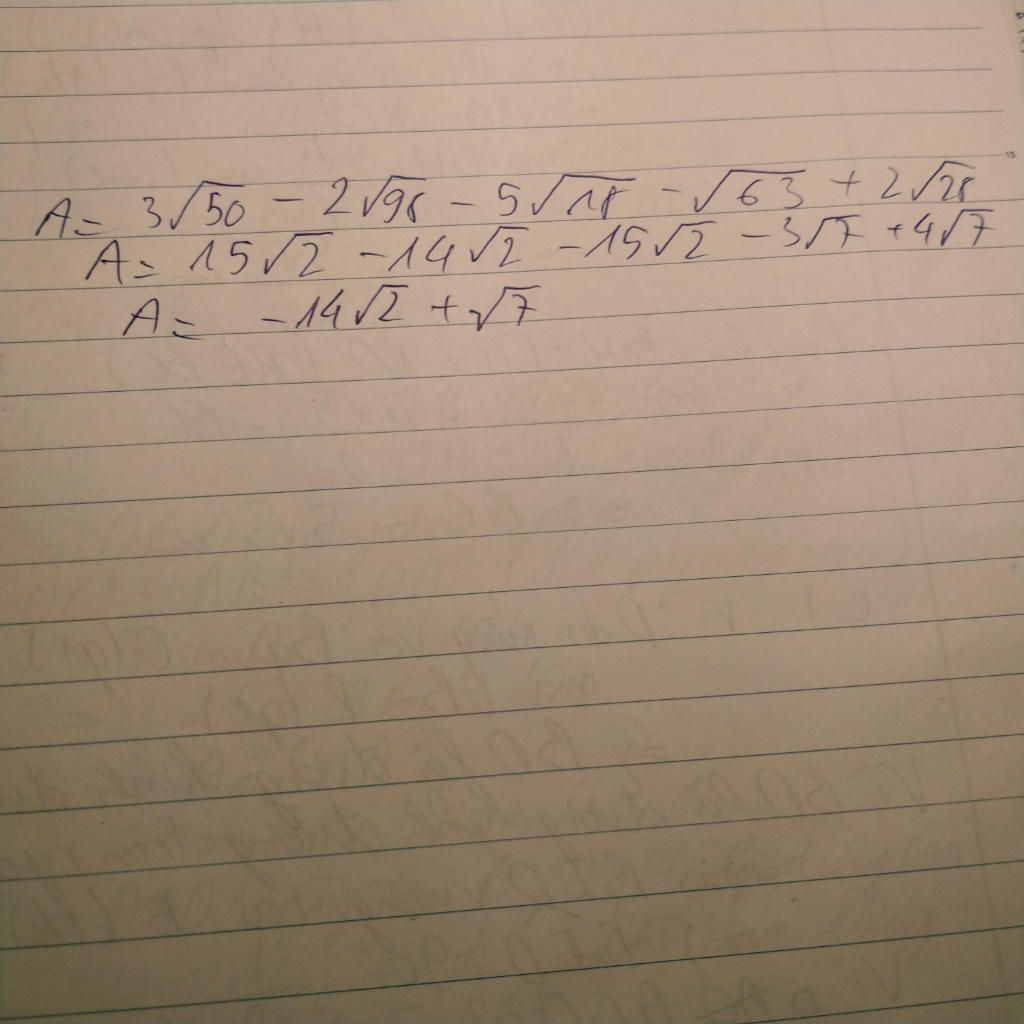 A = 3√50 - 2√98 - 5√18 - √63 + 2√28
A = 15√2 - 14√2 - 15√2 - 3√7 + 4√7
A = -14√2 + √7